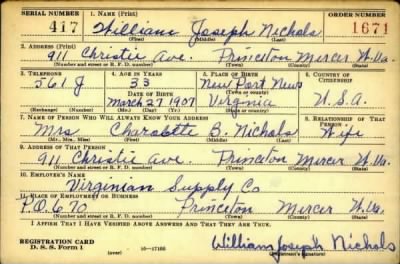 SERIAL NUMBER 1. NAME (Print) ORDER NUMBER
417 William Joseph Nichols 1671
(First) (Middle) (Last)
2. ADDRESS (Print)
911 Christie Ave. Princeton Mercer W.Va.
(Number and street or R. F. D. number) (Town) (County) (State)
3. TELEPHONE 4. AGE IN YEARS 5. PLACE OF BIRTH 6. COUNTRY OF CITIZENSHIP
561 J 33 New Port News
DATE OF BIRTH (Town or county)
March 27 1907 Virginia U.S.A.
(Exchange) (Number) (Mo.) (Day) (Yr.) (State or country)
7. NAME OF PERSON WHO WILL ALWAYS KNOW YOUR ADDRESS 8. RELATIONSHIP OF THAT PERSON
Mrs Charolotte B. Nichols Wife
(Mr., Mrs., Miss) (First) (Middle) (Last)
9. ADDRESS OF THAT PERSON
911 Christie Ave. Princeton Mercer W.Va.
(Number and street or R. F. D. number) (Town) (County) (State)
10. EMPLOYER'S NAME
Virginian Supply Co
11. PLACE OF EMPLOYMENT OR BUSINESS
P.O. 670 Princeton Mercer W.Va.
(Number and street or R. F. D. number) (Town) (County) (State)
I AFFIRM THAT I HAVE VERIFIED ABOVE ANSWERS AND THAT THEY ARE TRUE.
REGISTRATION CARD
D. S. S. Form 1 (over) 16—17105 William Joseph Nichols
(Registrant's signature)